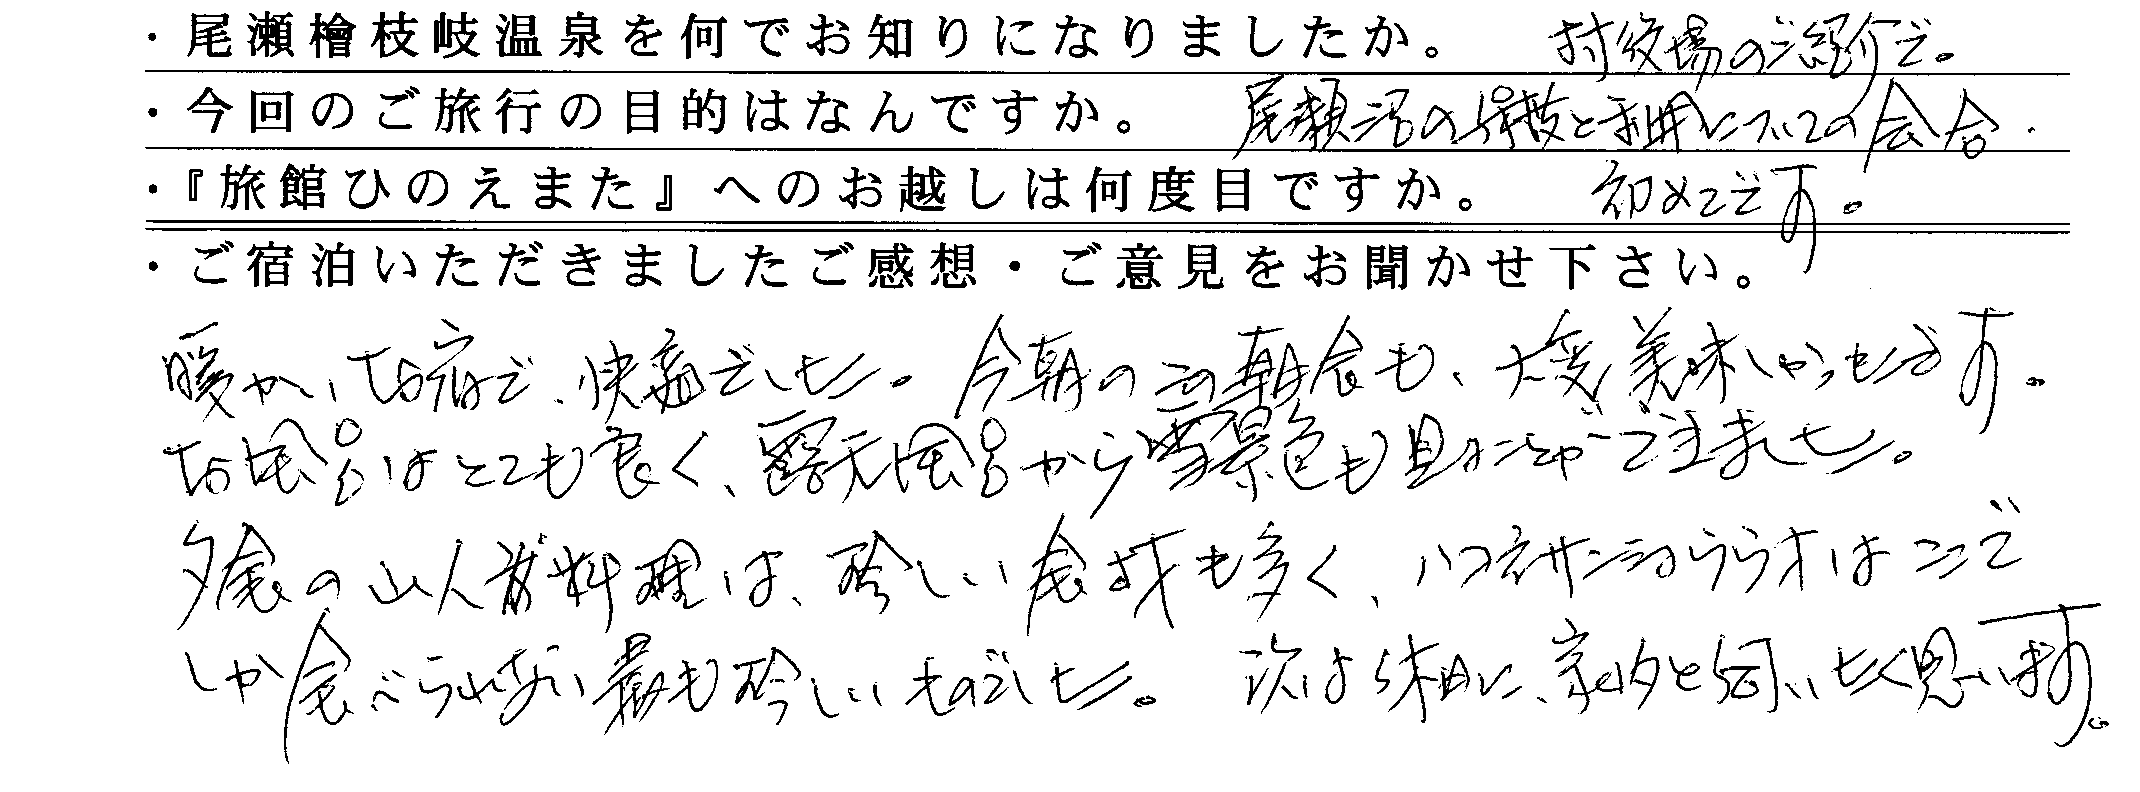 ・尾瀬檜枝岐温泉を何でお知りになりましたか。 村役場のご紹介で。
・今回のご旅行の目的はなんですか。 尾瀬沼の保護と利用についての会合.
・『旅館ひのえまた』へのお越しは何度目ですか。 初めてです。
・ご宿泊いただきましたご感想・ご意見をお聞かせ下さい。
暖かいお宿で、快適でした。今朝のご朝食も、大変美味しかったです。
お風呂はとても良く、露天風呂から雪景色も見ることができました。
夕食の山人料理は、珍しい食材も多く、ハコネサンショウウオはここで
しか食べられない最も珍しいものでした。 次は休日に、家内と伺いたく思います。